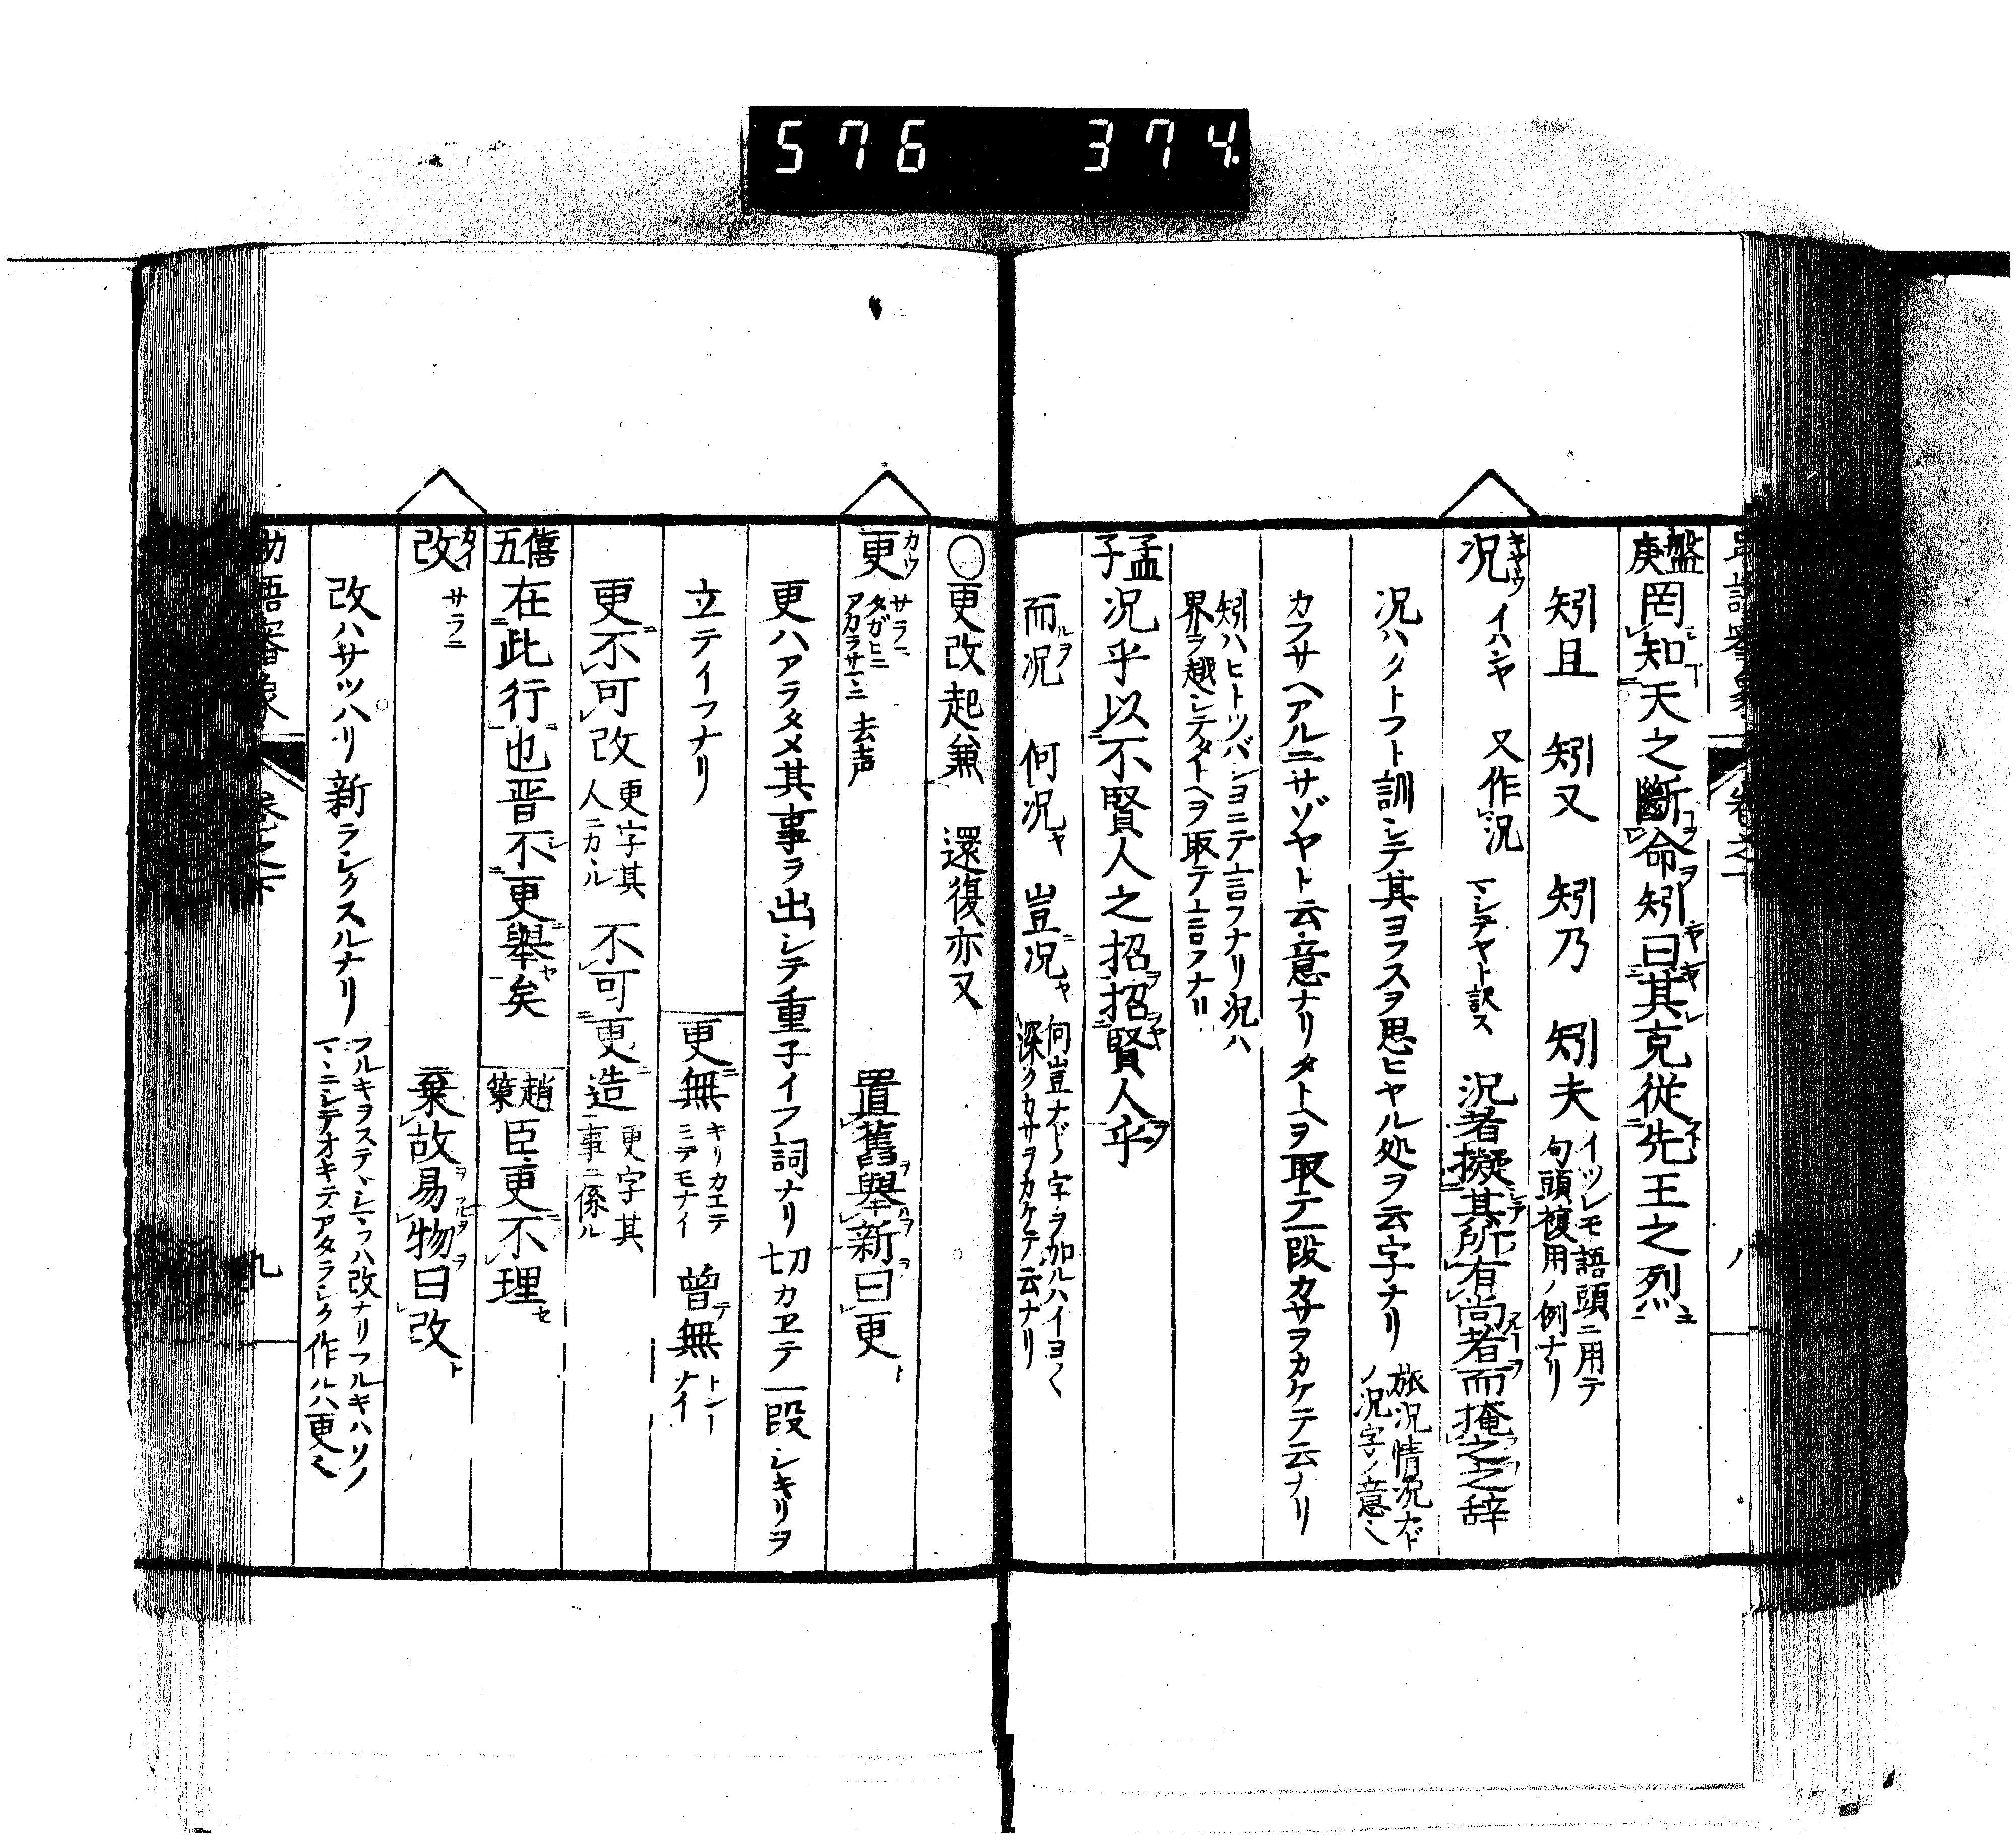 576 374
盤庚 罔知天之斷命矧曰其克從先王之烈
矧且 矧又 矧乃 矧夫 イツレモ語頭ニ用テ句頭複用ノ例ナリ
况 キヤウ イハンヤ 又作況 マシテヤト訳ス 況者擬其所有尚者而掩之之辞
況ハタトフト訓シテ其ヨフスヲ思ヒヤル処ヲ云字ナリ 旅況情況ナドノ況字ノ意
カフサヘアルニサゾヤト云意ナリタトヘヲ取テ一段カサヲカケテ云ナリ
矧ハヒトツバシヨニテ言フナリ況ハ
界ヲ越シテタトヘヲ取テ言フナリ
孟子 况乎以不賢人之招招賢人乎
而況 何況ヤ 豈況ヤ 何豈ナドノ字ヲ加ルハイヨ〱深クカサヲカケテ云ナリ
〇更改起兼 還復亦又
更 カウ サラニ タガヒニ アカラサマニ 去声 置舊舉新曰更
更ハアラタメ其事ヲ出シテ重子イフ詞ナリ切カヱテ一段シキリヲ
立テイフナリ 更無 キリカエテミテモナイ 曾無 トントナイ
更不可改 更字其人ニカヽル 不可更造 更字其事ニ係ル
僖五 在此行也晋不更舉矣 趙策 臣更不理
改 カイ サラニ 棄故易物曰改
改ハサツハリ新ラシクスルナリ フルキヲステヽシマフハ改ナリフルキハソノマヽニシテオキテアタラシク作ルハ更
助語審象 巻之下 九